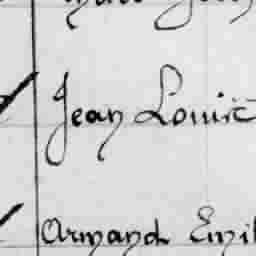 Jean Louis
Armand Emil